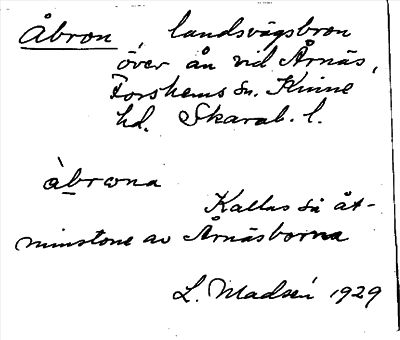 Åbron, landsvägsbron
över ån vid Årnäs,
Forshems sn. Kinne
hd. Skarab. l.
àbrona
Kallas så åt-
minstone av Årnäsborna
L. Madsén 1929